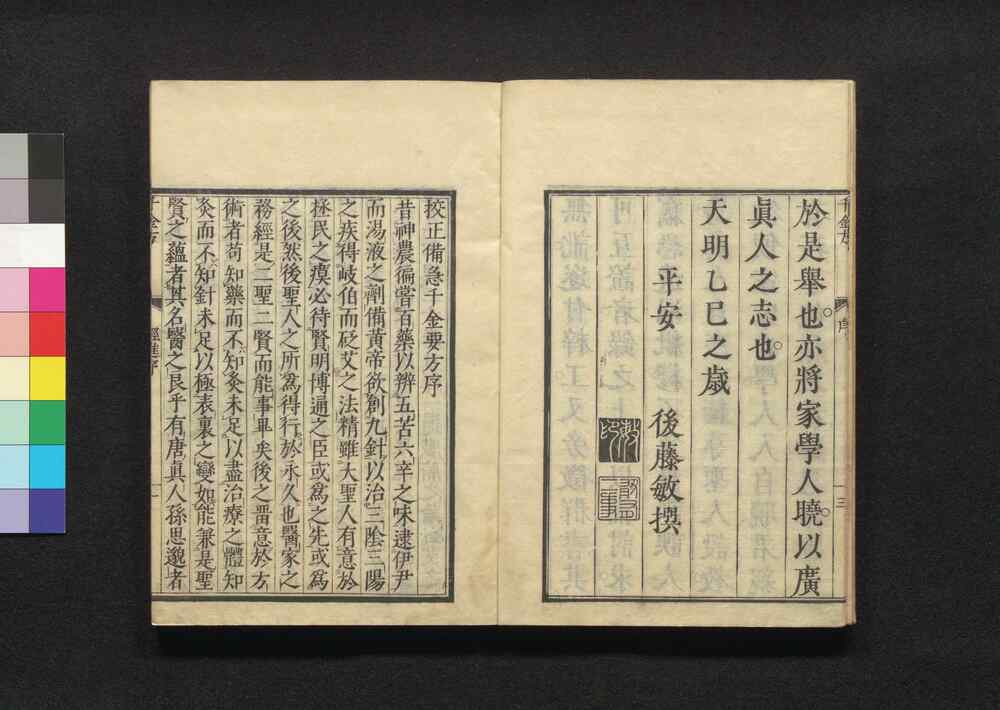 於是舉也亦將家學人曉以廣
眞人之志也
天明乙巳之歲
平安 後藤敏撰
序
三
校正備急千金要方序
昔神農徧嘗百藥以辨五苦六辛之味逮伊尹
而湯液之劑備黃帝欲創九針以治三陰三陽
之疾得岐伯而砭艾之法精雖大聖人有意於
拯民之瘼必待賢明博通之臣或爲之先或爲
之後然後聖人之所爲得行於永久也醫家之
務經是二聖二賢而能事畢矣後之留意於方
術者苟知藥而不知灸未足以盡治療之體知
灸而不知針未足以極表裏之變如能兼是聖
賢之蘊者其名醫之良乎有唐眞人孫思邈者